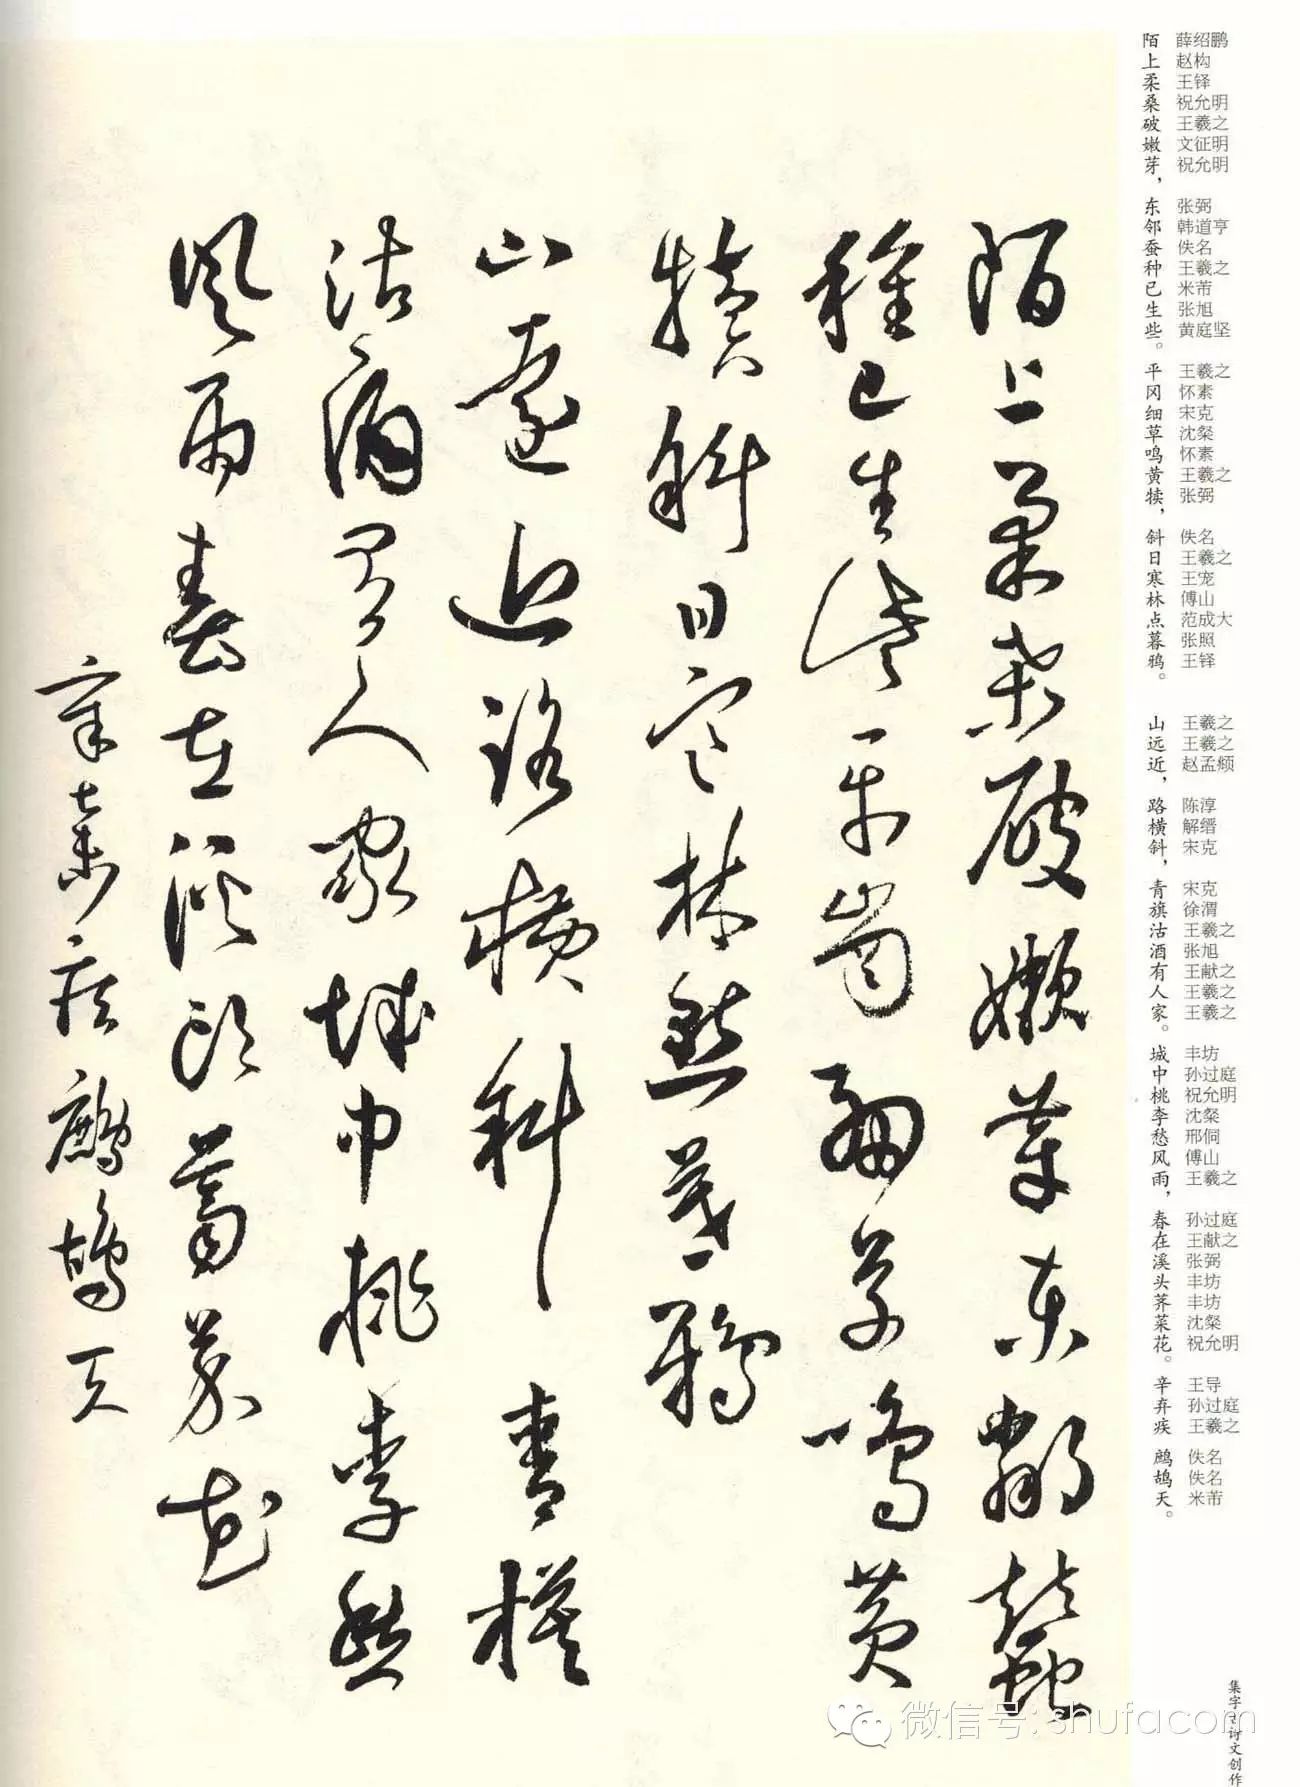 陌上柔桑破嫩芽東鄰蠶
種已生些平岡細草鳴黃
犢斜日寒林點暮鴉
山遠近路橫斜青旗
沽酒有人家城中桃李愁
風雨春在溪頭薺菜花
辛棄疾鷓鴣天
陌上柔桑破嫩芽，东邻蚕种已生些。平冈细草鸣黄犊，斜日寒林点暮鸦。
山远近，路横斜，青旗沽酒有人家。城中桃李愁风雨，春在溪头荠菜花。辛弃疾 鹧鸪天。
薛绍鹏
赵构
王铎
祝允明
王羲之
文征明
祝允明
张弼
韩道亨
佚名
王羲之
米芾
张旭
黄庭坚
王羲之
怀素
宋克
沈粲
怀素
王羲之
张弼
佚名
王羲之
王宠
傅山
范成大
张照
王铎
王羲之
王羲之
赵孟頫
陈淳
解缙
宋克
宋克
徐渭
王羲之
张旭
王献之
王羲之
王羲之
丰坊
孙过庭
祝允明
沈粲
邢侗
傅山
王羲之
孙过庭
王献之
张弼
丰坊
丰坊
沈粲
祝允明
王导
孙过庭
王羲之
佚名
佚名
米芾
集字古诗文创作
微信号: shufacom